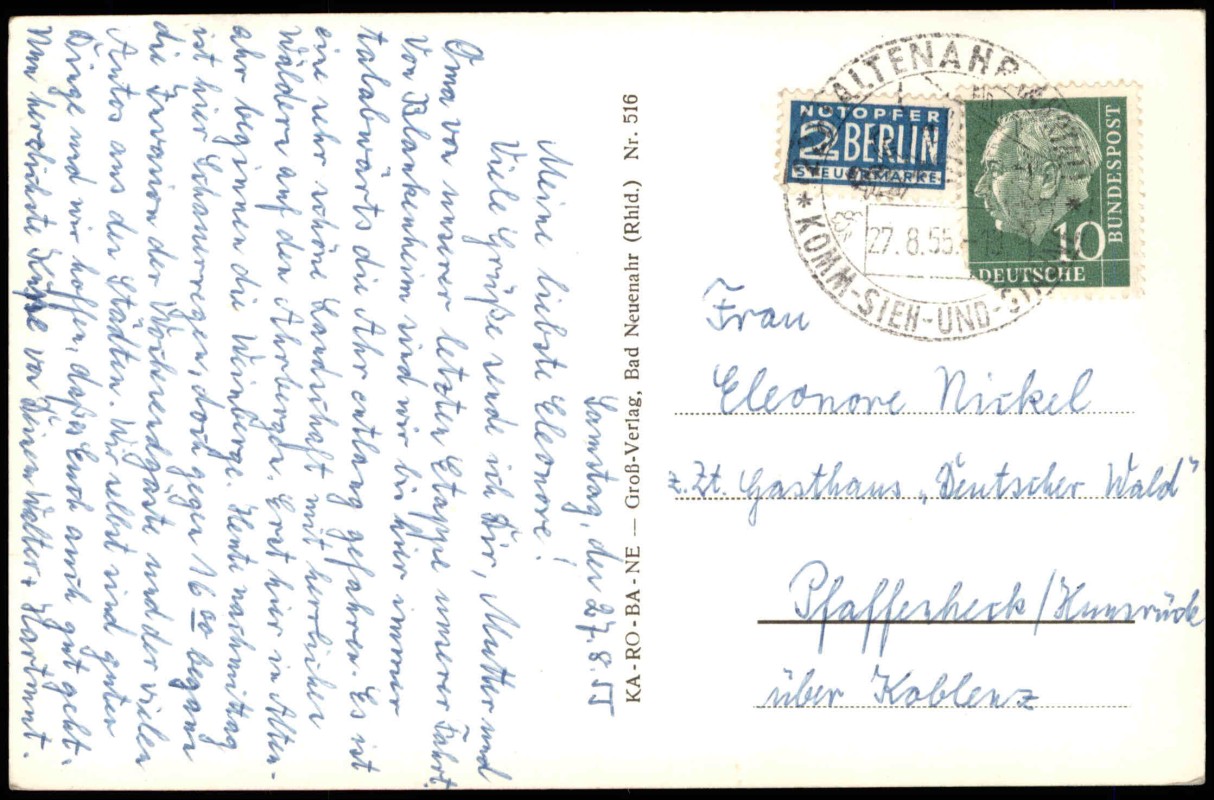 Samstag, den 27.8.55
Meine liebste Eleonore!
Viele Grüße sende ich Dir, Mutter und
Oma von unserer letzten Etappe unserer Fahrt.
Von Blankenheim sind wir bis hier immer
talabwärts die Ahr entlang gefahren. Es ist
eine sehr schöne Landschaft mit herrlichen
Wäldern auf den Ahrbergen. Erst hier in Alten-
ahr beginnen die Weinberge. Heute nachmittag
ist hier Schauerregen, doch gegen 16 00 begann
die Invasion der Wochenendgäste und der vielen
Autos aus den Städten. Wir selbst sind guter
Dinge und wir hoffen, daß es Euch auch gut geht.
Nun herzlichste Küsse von Deinem Walter + Hartmut.
KA-RO-BA-NE — Groß-Verlag, Bad Neuenahr (Rhld.) Nr. 516
NOTOPFER
2 BERLIN
STEUERMARKE
ALTENAHR
27.8.55
KOMM-SIEH-UND-
10
DEUTSCHE
BUNDESPOST
Frau
Eleonore Nickel
z.Zt. Gasthaus „Deutscher Wald"
Pfaffenheck/Hunsrück
über Koblenz